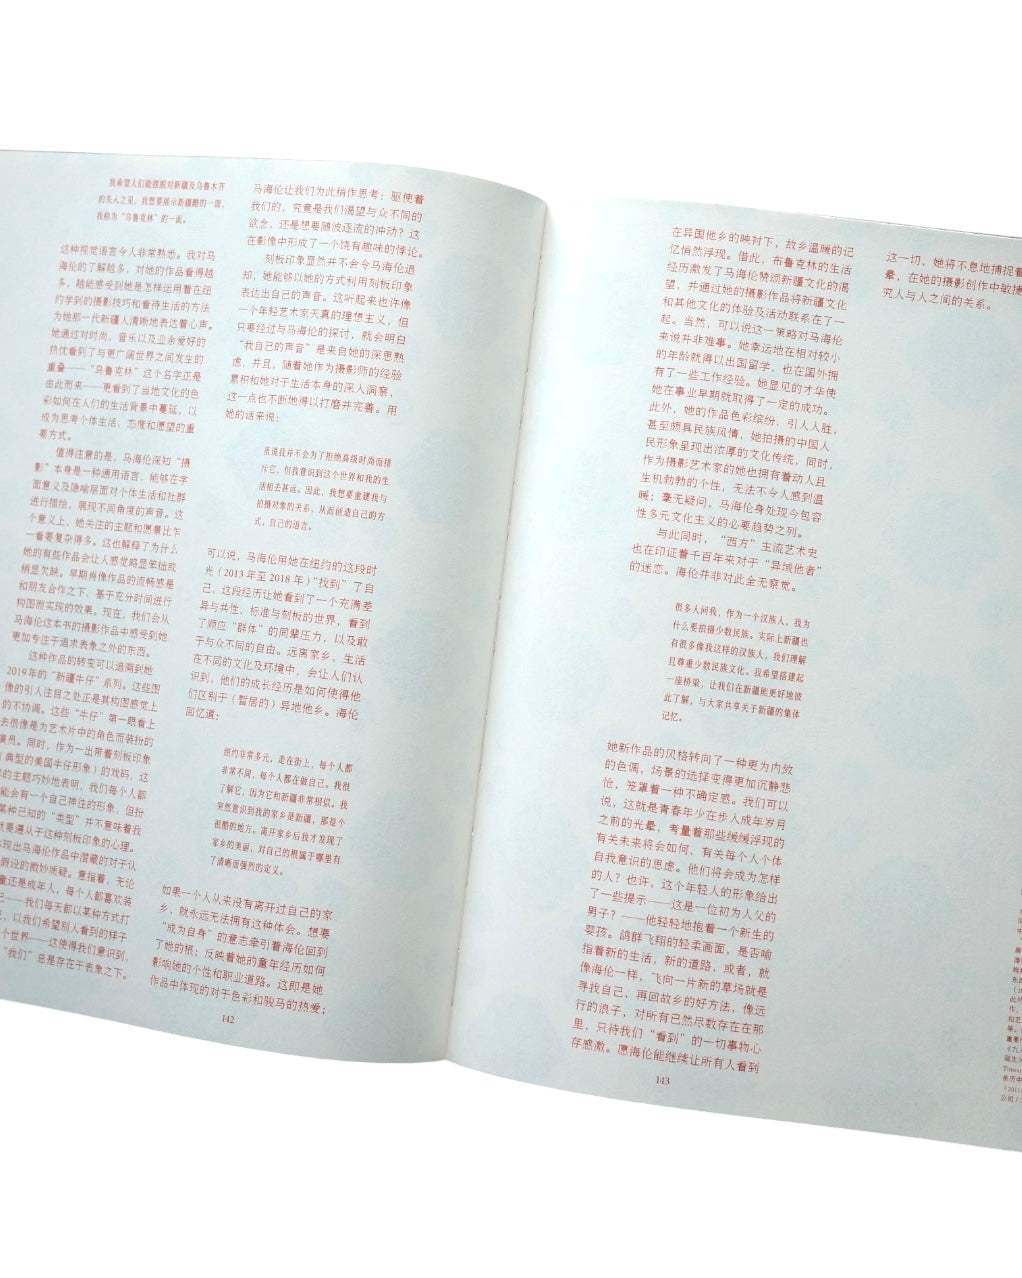 我希望人们能摆脱对新疆及乌鲁木齐
的先入之见，我想要展示新疆酷的一面，
我称为“乌鲁克林”的一面。
这种视觉语言令人非常熟悉。我对马
海伦的了解越多，对她的作品看得越
多，越能感受到她是怎样运用着在纽
约学到的摄影技巧和看待生活的方法
为她那一代新疆人清晰地表达着心声。
她通过对时尚、音乐以及业余爱好的
热忱看到了与更广阔世界之间发生的
重叠——“乌鲁克林”这个名字正是
由此而来——更看到了当地文化的色
彩如何在人们的生活背景中蔓延，以
成为思考个体生活、态度和愿望的重
要方式。
值得注意的是，马海伦深知“摄
影”本身是一种通用语言，能够在字
面意义及隐喻层面对个体生活和社群
进行描绘，展现不同角度的声音。这
个意义上，她关注的主题和愿景比乍
一看要复杂得多。这也解释了为什么
她的有些作品会让人感觉略显笨拙或
稍显欠缺。早期肖像作品的流畅感是
和朋友合作之下、基于充分时间进行
构图而实现的效果。现在，我们会从
马海伦这本书的摄影作品中感受到她
更加专注于追求表象之外的东西。
这种作品的转变可以追溯到她
2019年的“新疆牛仔”系列。这些图
像的引人注目之处正是其构图感觉上
的不协调。这些“牛仔”第一眼看上
去很像是为艺术片中的角色而装扮的
演员。同时，作为一出带着刻板印象
（典型的美国牛仔形象）的戏码，这
的主题巧妙地表明，我们每个人都
能会有一个自己神往的形象，但扮
某种已知的“类型”并不意味着我
就要遵从于这种刻板印象的心理。
现出马海伦作品中潜藏的对于认
假设的微妙质疑。意指着，无论
童还是成年人，每个人都喜欢装
己——我们每天都以某种方式打
，以我们希望别人看到的样子
个世界——这使得我们意识到，
“我们”总是存在于表象之下。
马海伦让我们为此稍作思考：驱使着
我们的，究竟是我们渴望与众不同的
欲念，还是想要随波逐流的冲动？这
在影像中形成了一个饶有趣味的悖论。
刻板印象显然并不会令马海伦退
却，她能够以她的方式利用刻板印象
表达出自己的声音。这听起来也许像
一个年轻艺术家天真的理想主义，但
只要经过与马海伦的探讨，就会明白
“我自己的声音”是来自她的深思熟
虑，并且，随着作为摄影师的经验
累积和她对于生活本身的深入洞察，
这一点也不断地得以打磨并完善。用
她的话来说：
虽说我并不会为了拒绝高级时尚而排
斥它，但我意识到这个世界和我的生
活相去甚远。因此，我想要重建我与
拍摄对象的关系，从而创造自己的方
式，自己的语言。
可以说，马海伦用她在纽约的这段时
光（2013 年至 2018 年）“找到”了自
己，这段经历让她看到了一个充满差
异与共性、标准与刻板的世界，看到
了顺应“群体”的同辈压力，以及敢
于与众不同的自由。远离家乡，生活
在不同的文化及环境中，会让人们认
识到，他们的成长经历是如何使得他
们区别于（暂居的）异地他乡。海伦
回忆道：
纽约非常多元，走在街上，每个人都
非常不同，每个人都在做自己。我很
了解它，因为它和新疆非常相似。我
突然意识到我的家乡是新疆，那是个
很酷的地方。离开家乡后我才发现了
家乡的美丽，对自己的根属于哪里有
了清晰而强烈的定义。
如果一个人从来没有离开过自己的家
乡，就永远无法拥有这种体会。想要
“成为自身”的意志牵引着海伦回到
了她的根；反映着她的童年经历如何
影响她的个性和职业道路。这即是她
作品中体现的对于色彩和骏马的热爱；
142
在异国他乡的映衬下，故乡温暖的记
忆悄然浮现。借此，布鲁克林的生活
经历激发了马海伦赞颂新疆文化的渴
望，并通过她的摄影作品将新疆文化
和其他文化的体验及活动联系在了一
起。当然，可以说这一策略对马海伦
来说并非难事。她幸运地在相对较小
的年龄就得以出国留学，也在国外拥
有了一些工作经验。她显见的才华使
她在事业早期就取得了一定的成功。
此外，她的作品色彩缤纷，引人入胜，
甚至颇具民族风情，她拍摄的中国人
民形象呈现出浓厚的文化传统，同时，
作为摄影艺术家的她也拥有着动人且
生机勃勃的个性，无法不令人感到温
暖；毫无疑问，马海伦身处现今包容
性多元文化主义的必要趋势之列。
与此同时，“西方”主流艺术史
也在印证着千百年来对于“异域他者”
的迷恋。海伦并非对此全无察觉。
很多人问我，作为一个汉族人，我为
什么要拍摄少数民族。实际上新疆也
有很多像我这样的汉族人，我们理解
且尊重少数民族文化。我希望搭建起
一座桥梁，让我们在新疆能更好地彼
此了解，与大家共享关于新疆的集体
记忆。
她新作品的风格转向了一种更为内敛
的色调，场景的选择变得更加沉静悲
怆，笼罩着一种不确定感。我们可以
说，这就是青春年少在步入成年岁月
之前的光晕，考量着那些缓缓浮现的
有关未来将会如何、有关每个人个体
自我意识的思虑。他们将会成为怎样
的人？也许，这个年轻人的形象给出
了一些提示——这是一位初为人父的
男子？——他轻轻地抱着一个新生的
婴孩。鸽群飞翔的轻柔画面，是否喻
指着新的生活，新的道路，或者，就
像海伦一样，飞向一片新的草场就是
寻找自己、再回故乡的好方法，像远
行的浪子，对所有已然尽数存在在那
里，只待我们“看到”的一切事物心
存感激。愿海伦能继续让所有人看到
143
这一切，她将不息地捕捉着
晕，在她的摄影创作中敏捷
究人与人之间的关系。